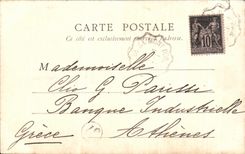 CARTE POSTALE
Ce côté est exclusivement réservé à l'adresse.
10
Mademoiselle
Clio G Parissi
Banque Industrielle
Grece Athènes